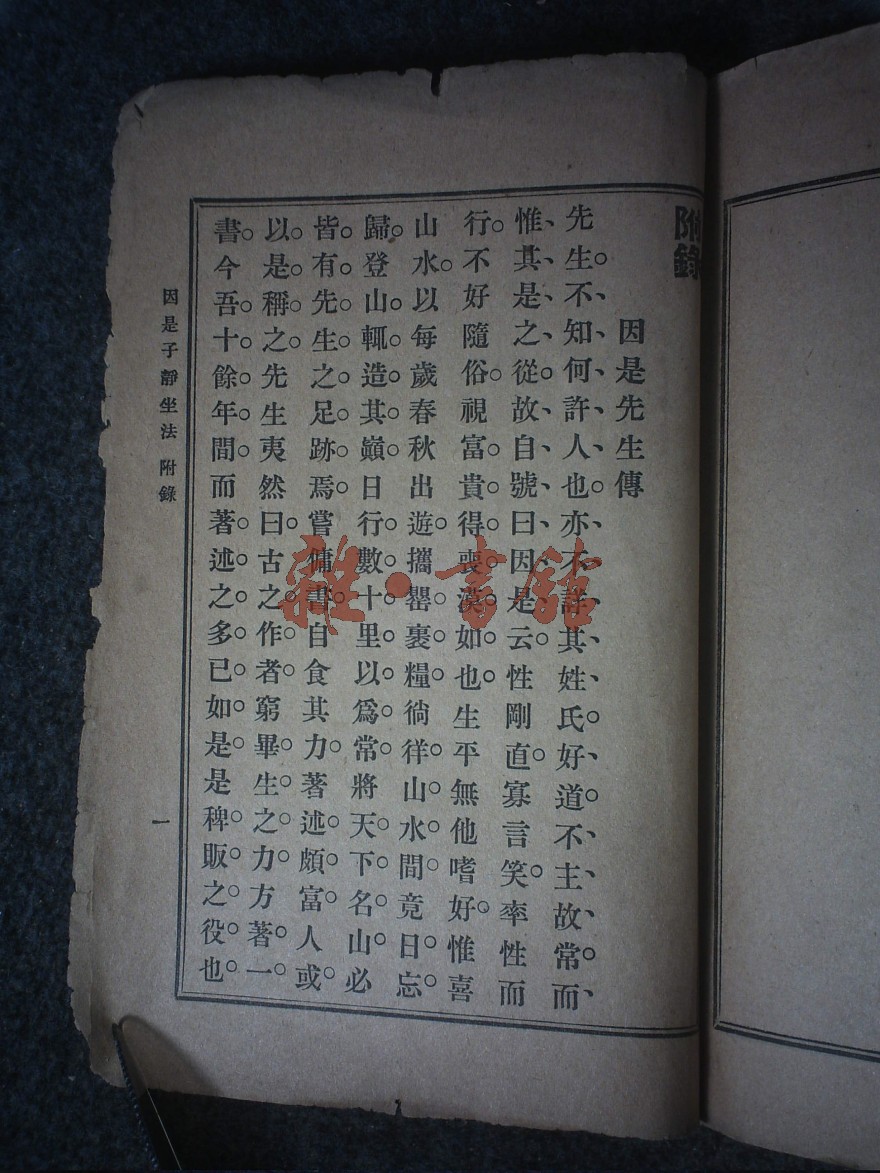 附錄
因是先生傳
先生。不、知、何、許、人、也。亦、不、詳、其、姓、氏。好、道。不、主、故、常。而、
惟、其、是、之、從。故、自、號、曰、因、是、云。性剛直。寡言笑。率性而
行。不好隨俗。視富。貴。得。喪。漠。如。也。生平無他嗜好。惟喜
山水。以每歲春秋出遊。攜罌裹糧。徜徉。山。水。間。竟日。忘。
歸。登山。輒。造。其。巔。日行。數。十。里。以。爲。常。將天。下。名。山。必
皆。有。先。生。之。足。跡。焉。嘗傭書。自食其力。著述。頗富。人或。
以。是。稱。之。先生夷然曰。古之。作。者。窮畢。生。之。力。方著。一。
書。今吾。十餘。年。間。而著。述。之多。已。如。是。是稗。販。之。役。也。
因是子靜坐法 附錄
一
雜·書館